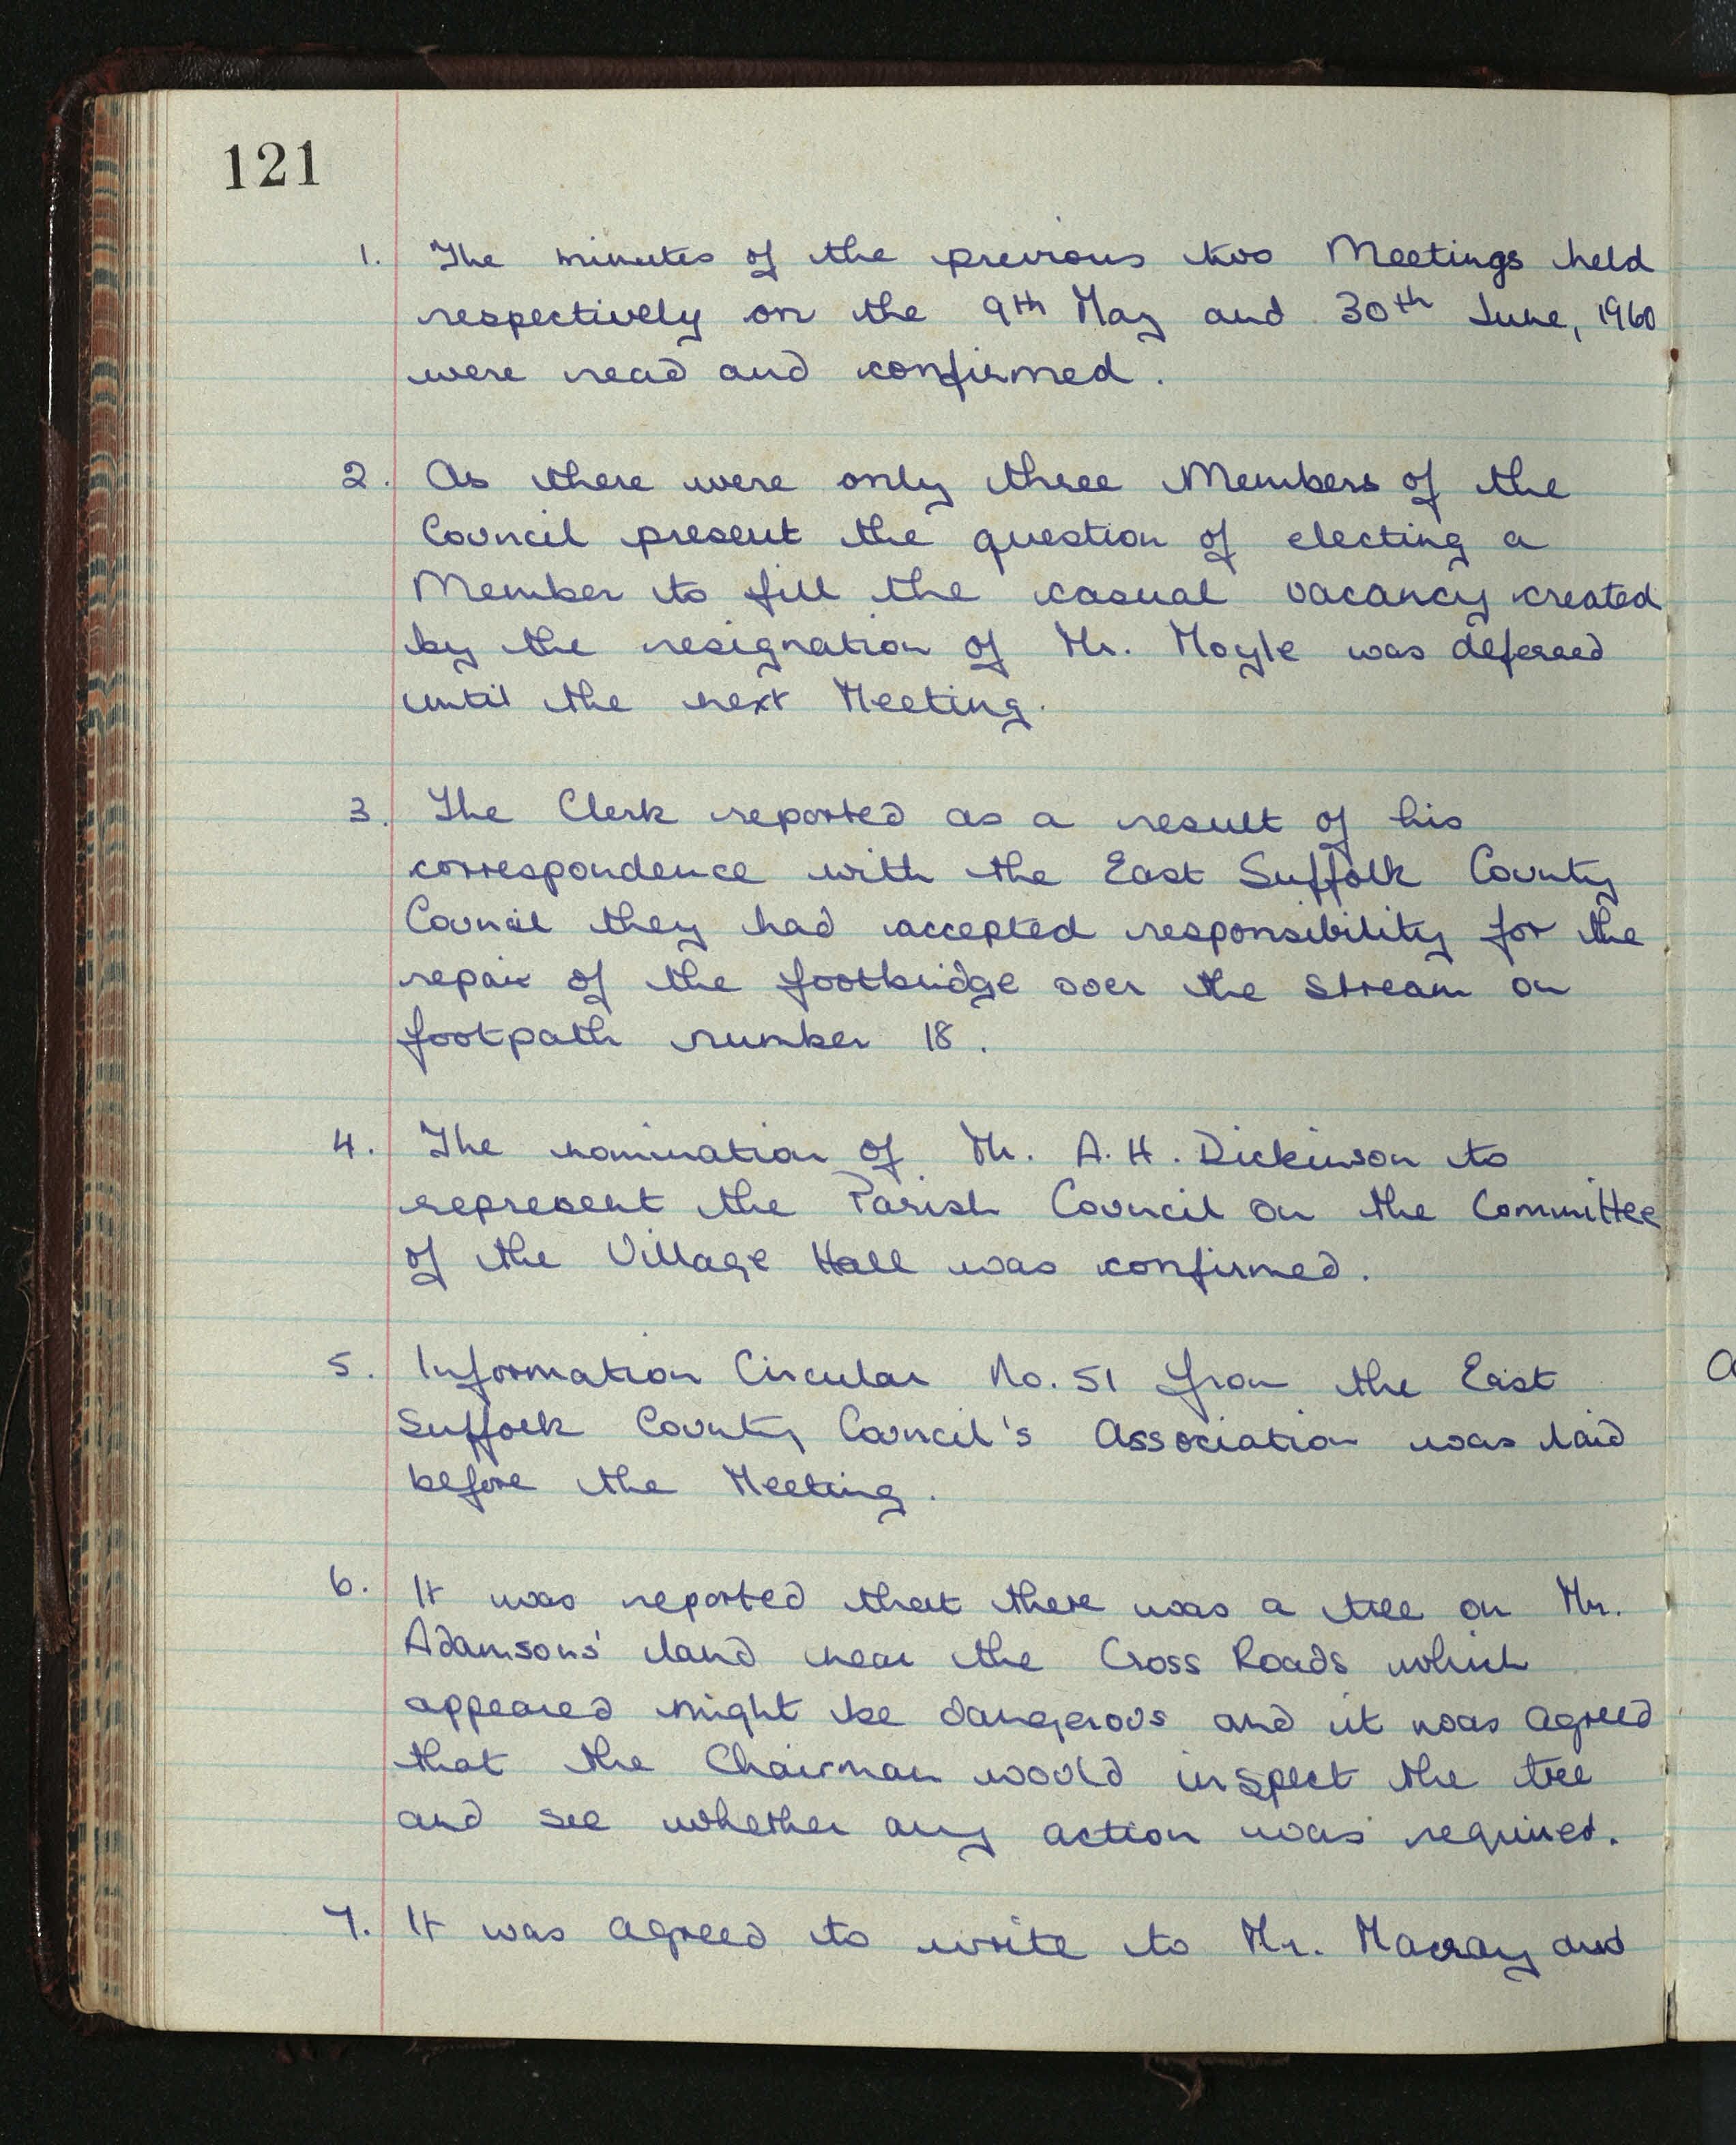 121
1. The minutes of the previous two Meetings held
respectively on the 9th May and 30th June, 1960
were read and confirmed.
2. As there were only three Members of the
Council present the question of electing a
Member to fill the casual vacancy created
by the resignation of Mr. Moyle was defered
until the next Meeting.
3. The Clerk reported as a result of his
correspondence with the East Suffolk County
Council they had accepted responsibility for the
repair of the footbridge over the stream on
footpath number 18.
4. The nomination of Mr. A.H. Dickinson to
represent the Parish Council on the Committee
of the Village Hall was confirmed.
5. Information Circular No. 51 from the East
Suffolk County Council's Association was laid
before the Meeting.
6. It was reported that there was a tree on Mr.
Adamsons' land near the Cross Roads which
appeared might be dangerous and it was agreed
that the Chairman would inspect the tree
and see whether any action was required.
7. It was agreed to write to Mr. Macray and